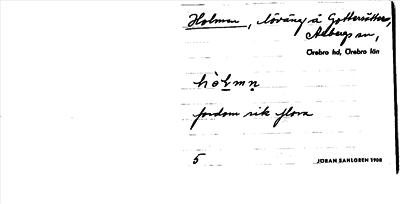 Holmen, löväng å Gottersätters,
Axbergs sn,
Örebro hd, Örebro län
hòlmn̥
fordom rik flora
5 JÖRAN SAHLGREN 1908